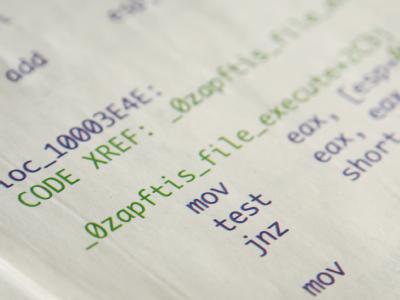 esp
add
loc_10003E4E:
CODE XREF: _0zapftis_file_
_0zapftis_file_execute+2C3j
mov eax, [esp+
test eax, eax
jnz short
mov